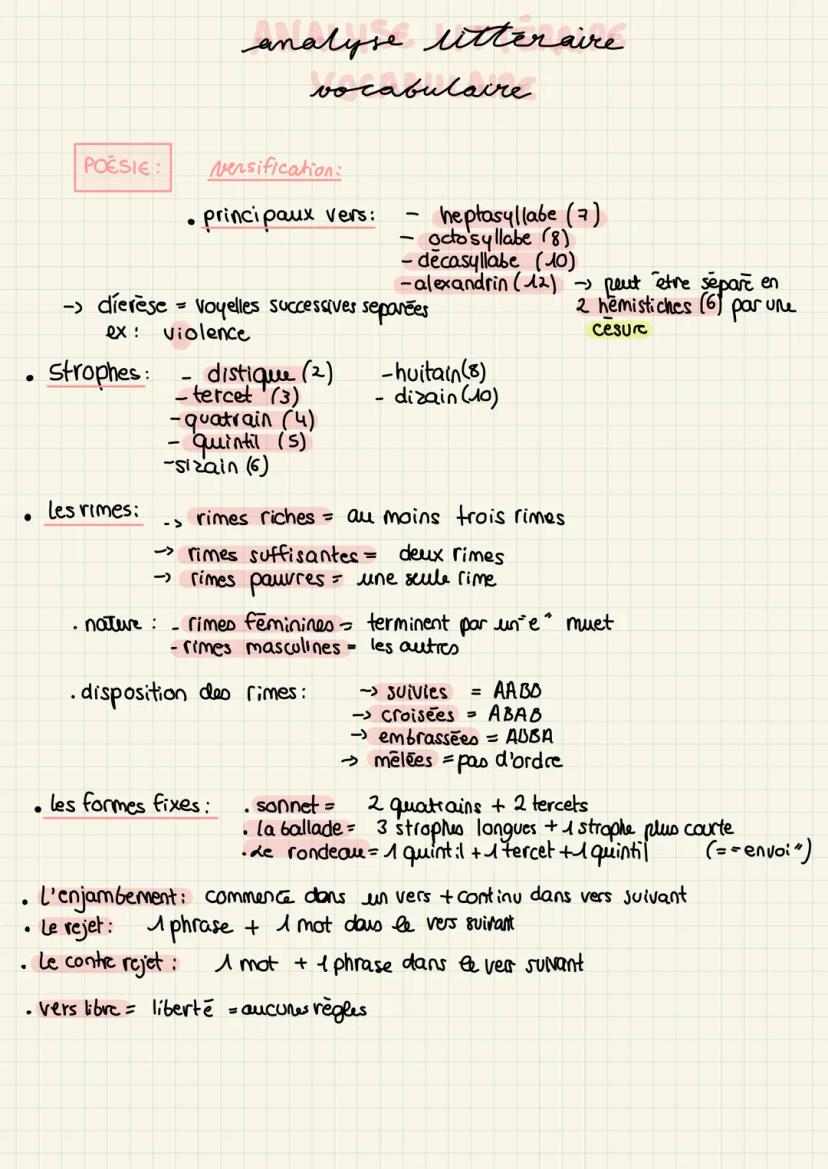 analyse littéraire
vocabulaire
POÉSIE : versification:
• principaux vers: - heptasyllabe (7)
- octosyllabe (8)
- décasyllabe (10)
- alexandrin (12) -> peut être séparé en
-> dierèse = voyelles successives separées 2 hémistiches (6) par une
ex : violence césure
• Strophes: - distique (2) - huitain (8)
- tercet (3) - dizain (10)
- quatrain (4)
- quintil (5)
- sizain (6)
• les rimes: -> rimes riches = au moins trois rimes
-> rimes suffisantes = deux rimes
-> rimes pauvres = une seule rime
• nature : - rimes féminines = terminent par un "e" muet
- rimes masculines = les autres
• disposition des rimes: -> suivies = AABB
-> croisées = ABAB
-> embrassées = ABBA
-> mêlées = pas d'ordre
• les formes fixes: • sonnet = 2 quatrains + 2 tercets
• la ballade = 3 strophes longues + 1 strophe plus courte
• Le rondeau = 1 quintil + 1 tercet + 1 quintil (= "envoi")
• L'enjambement: commence dans un vers + continu dans vers suivant
• Le rejet: 1 phrase + 1 mot dans le vers suivant
• Le contre rejet: 1 mot + 1 phrase dans le vers suivant
• vers libre = liberté = aucunes règles